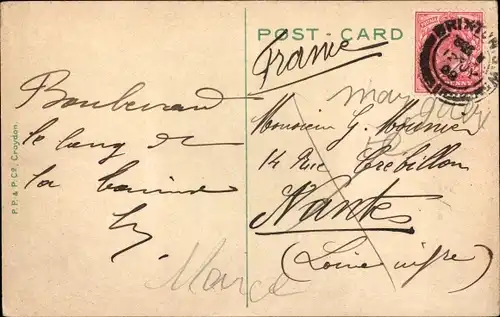 POST - CARD
France
BRIXTON
PENNY
Boulevard
le long de
la
Monsieur G. Mounier
14 Rue Crébillon
Nantes
(Loire infre)
Marcel
P. P. & P. Co., Croydon.